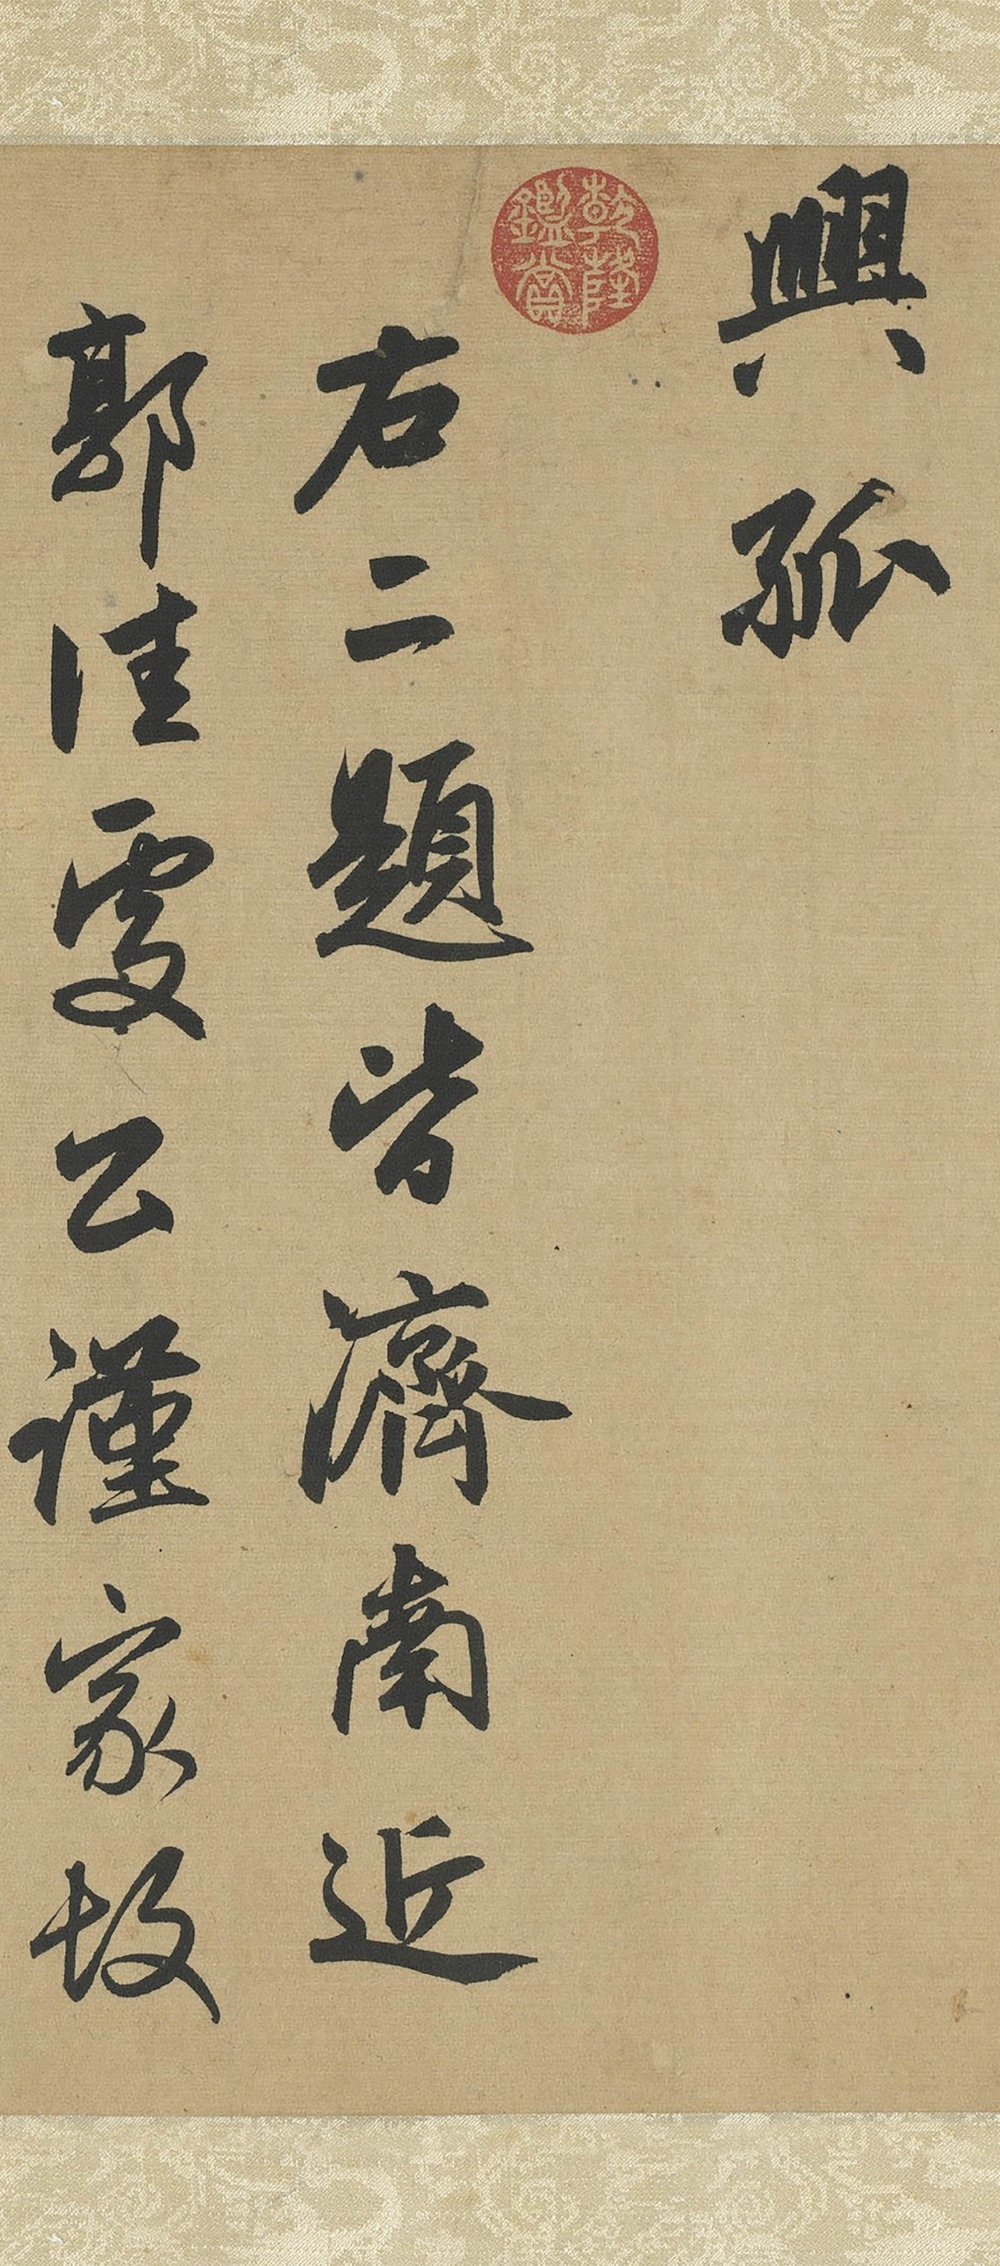 興孤
乾隆鑑賞
右二題皆濟南近
郭佳處公謹家故